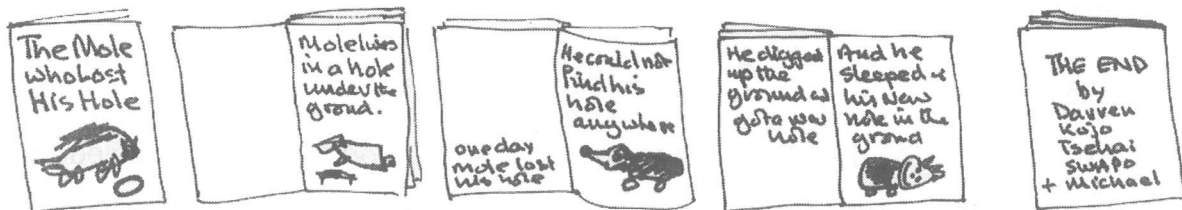 The Mole
who Lost
His Hole
Mole lives
in a hole
under the
ground.
one day
mole lost
his hole
He could not
find his
hole
anywhere
He digged
up the
ground and
got a new
hole
And he
sleeped in
his New
hole in the
ground
THE END
by
Darren
Kojo
Tsehai
SWAPO
+ Michael